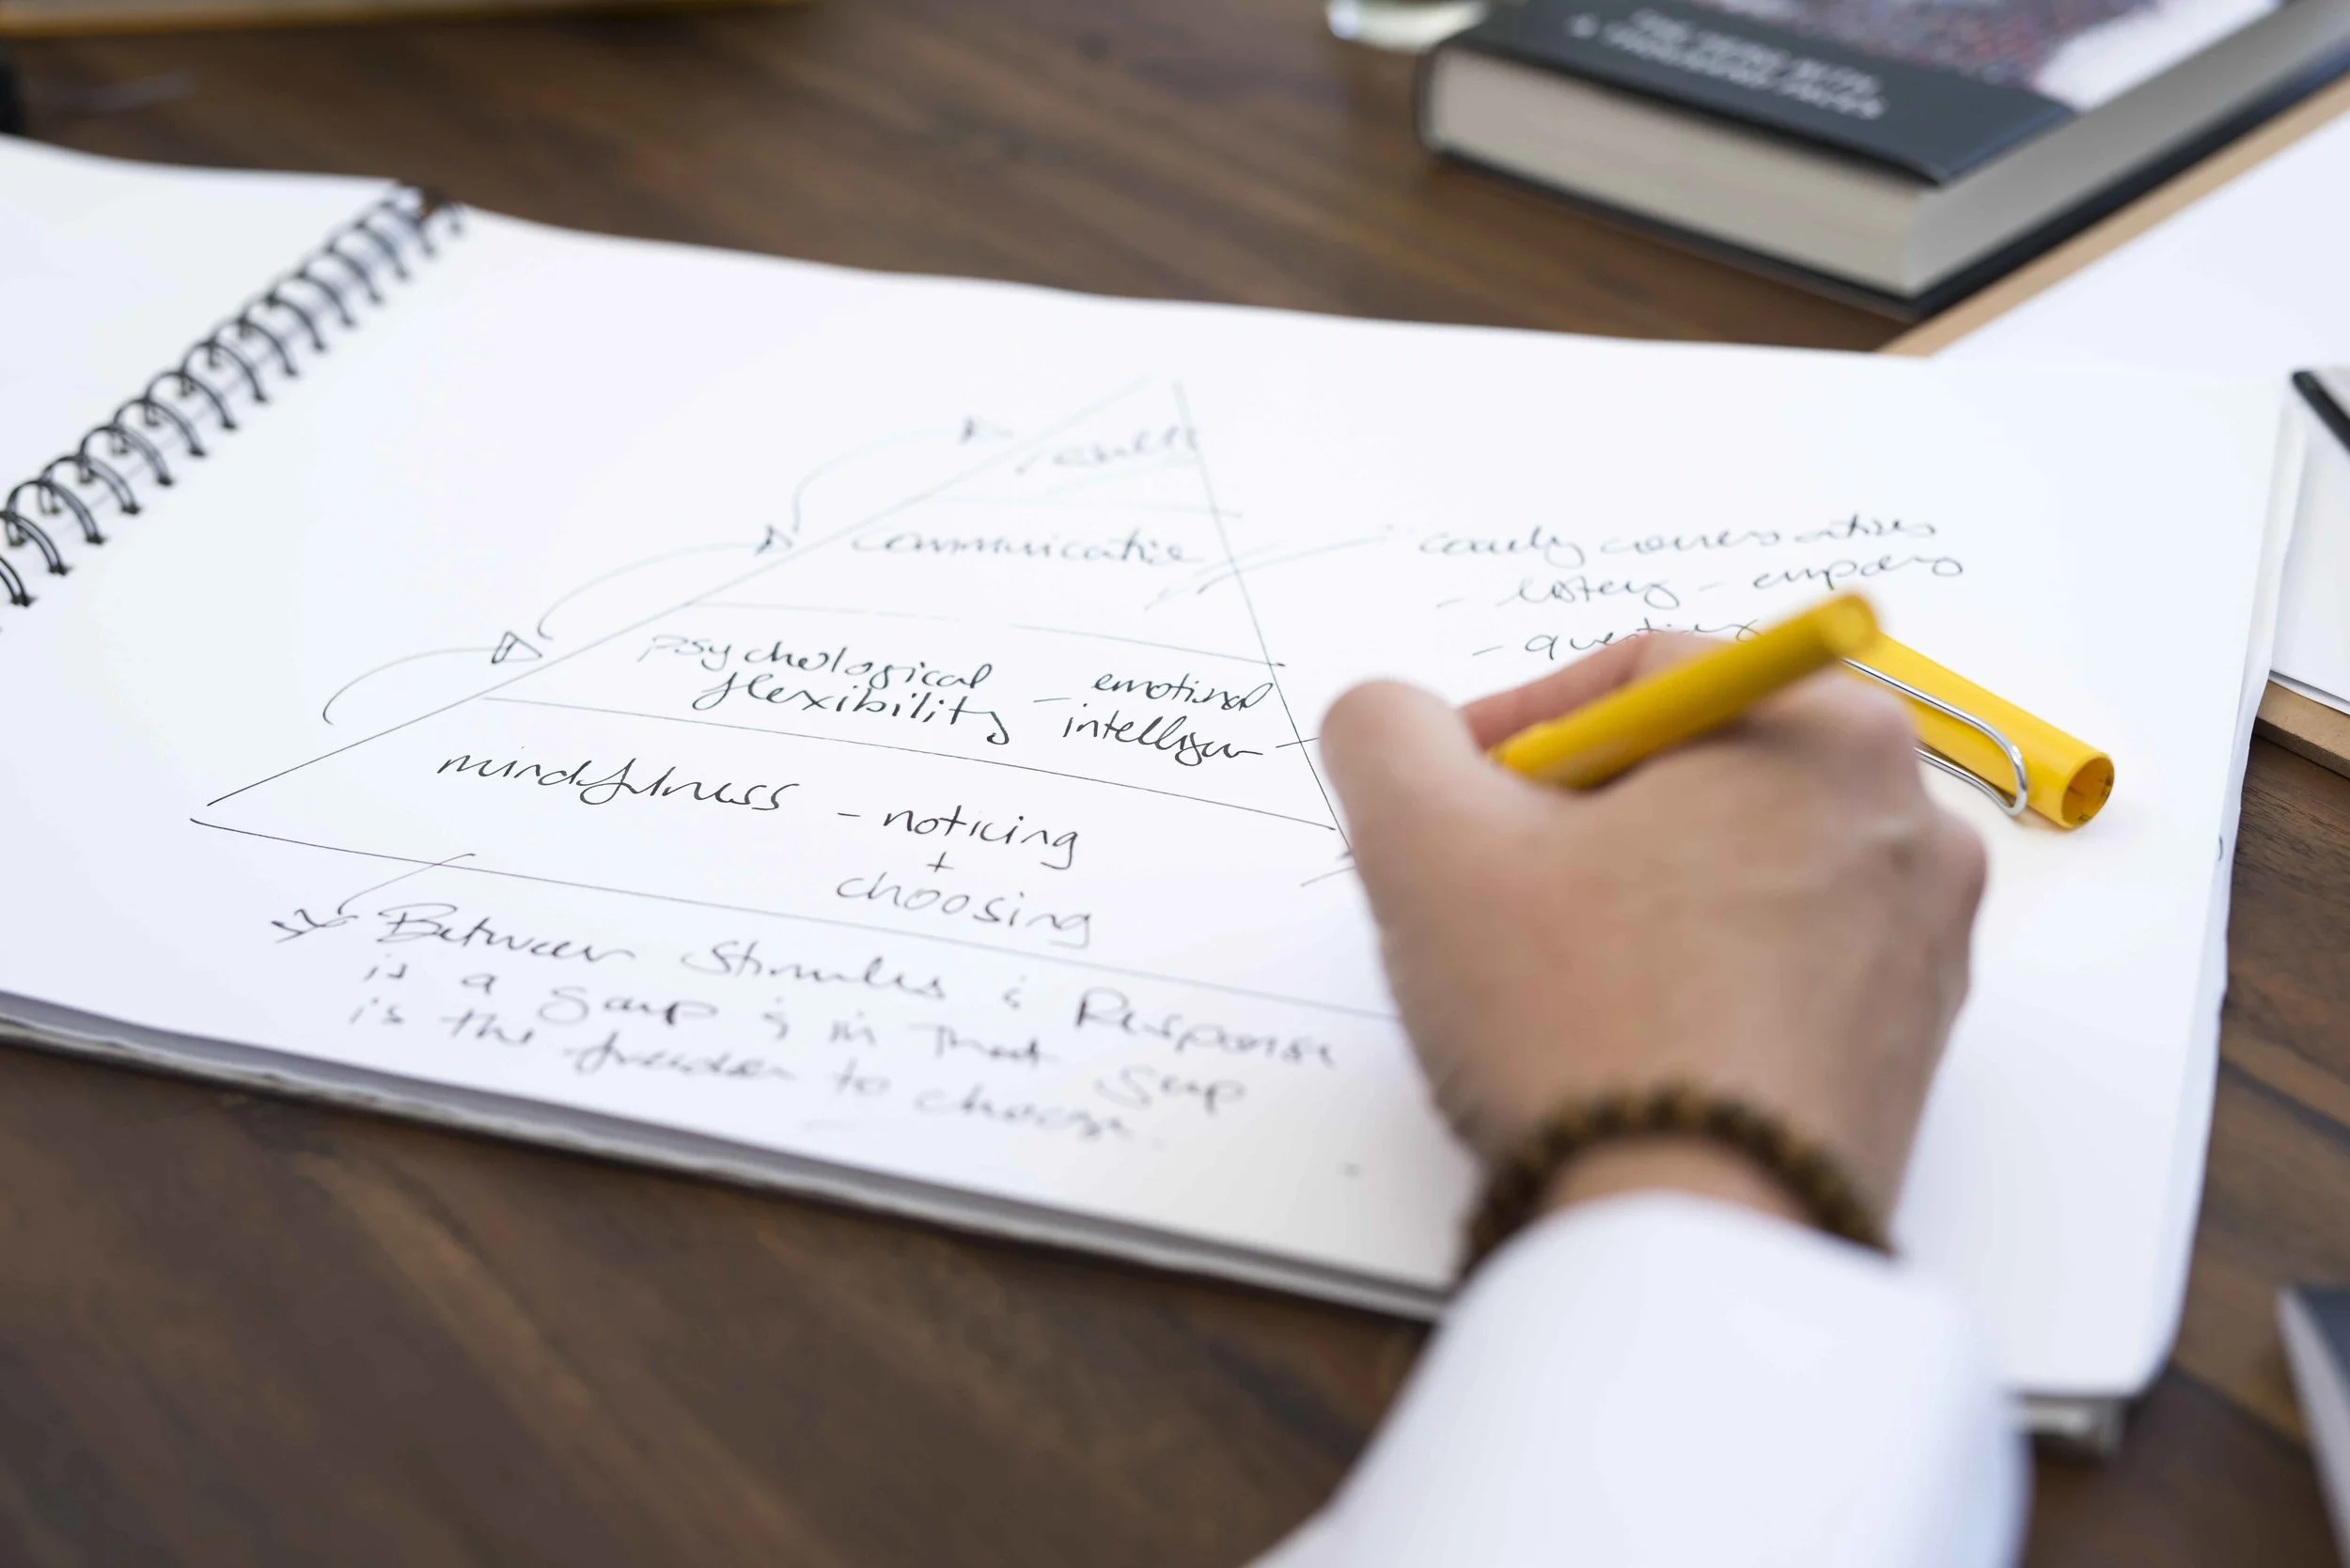 THE HERO WITH
A THOUSAND FACES
results
communication
coaching conversations
- listening - empathy
- questions
psychological
flexibility
- emotional
intelligen
mindfulness - noticing
+
choosing
Between Stimulus & Response
is a gap & in that gap
is the freedom to choose.